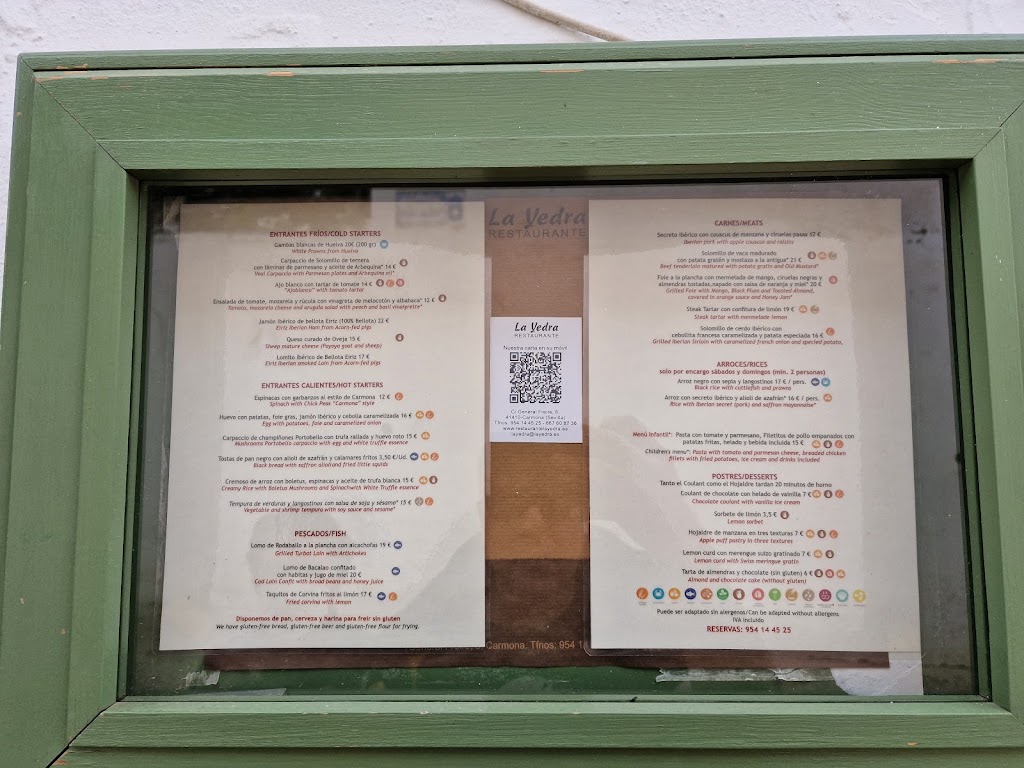 ENTRANTES FRÍOS/COLD STARTERS
Gambas blancas de Huelva 20€ (200 gr)
White Prawns from Huelva
Carpaccio de Solomillo de ternera
con láminas de parmesano y aceite de Arbequina* 14 €
Veal Carpaccio with Parmesan plates and Arbequina oil*
Ajo blanco* con tartar de tomate 14 €
"Ajoblanco" with tomato tartar
Ensalada de tomate, mozarela y rúcula con vinagreta de melocotón y albahaca* 12 €
Tomato, mozarela cheese and arugula salad with peach and basil vinaigrette*
Jamón Ibérico de bellota Eíriz (100% Bellota) 22 €
Eíriz Iberian Ham from Acorn-fed pigs
Queso curado de Oveja 15 €
Sheep mature cheese (Payoyo goat and sheep)
Lomito Ibérico de Bellota Eíriz 17 €
Eíriz Iberian smoked Loin from Acorn-fed pigs
ENTRANTES CALIENTES/HOT STARTERS
Espinacas con garbanzos al estilo de Carmona 12 €
Spinach with Chick Peas "Carmona" style
Huevo con patatas, foie gras, jamón ibérico y cebolla caramelizada 16 €
Egg with potatoes, foie and caramelized onion
Carpaccio de champiñones Portobello con trufa rallada y huevo roto 15 €
Mushrooms Portobello carpaccio with egg and white truffle essence
Tostas de pan negro con alioli de azafrán y calamares fritos 3,50 €/Ud.
Black bread with saffron alioliand fried little squids
Cremoso de arroz con boletus, espinacas y aceite de trufa blanca 15 €
Creamy Rice with Boletus Mushrooms and Spinachwith White Truffle essence
Tempura de verduras y langostinos con salsa de soja y sésamo* 15 €
Vegetable and shrimp tempura with soy sauce and sesame*
PESCADOS/FISH
Lomo de Rodaballo a la plancha con alcachofas 19 €
Grilled Turbot Loin with Artichokes
Lomo de Bacalao confitado
con habitas y jugo de miel 20 €
Cod Loin Confit with broad beans and honey juice
Taquitos de Corvina fritos al limón 17 €
Fried corvina with lemon
Disponemos de pan, cerveza y harina para freir sin gluten
We have gluten-free bread, gluten-free beer and gluten-free flour for frying.
La Yedra
RESTAURANTE
La Yedra
RESTAURANTE
Nuestra carta en su móvil
C/ General Freire, 6
41410-Carmona (Sevilla)
Tfnos. 954 14 45 25 - 667 60 87 36
www.restaurantelayedra.es
layedra@layedra.es
Carmona. Tfnos: 954 1
CARNES/MEATS
Secreto Ibérico con couscus de manzana y ciruelas pasas 17 €
Iberian pork with apple couscus and raisins
Solomillo de vaca madurado
con patata gratén y mostaza a la antigua* 21 €
Beef tenderloin matured with potato gratin and Old Mustard*
Foie a la plancha con mermelada de mango, ciruelas negras y
almendras tostadas, napado con salsa de naranja y miel* 20 €
Grilled Foie with Mango, Black Plum and Toasted Almond,
covered in orange sauce and Honey Jam*
Steak Tartar con confitura de limón 19 €
Steak tartar with mermelade lemon
Solomillo de cerdo ibérico con
cebollita francesa caramelizada y patata especiada 16 €
Grilled Iberian Sirloin with caramelized french onion and specied potato,
ARROCES/RICES
solo por encargo sábados y domingos (mín. 2 personas)
Arroz negro con sepia y langostinos 17 € / pers.
Black rice with cuttlefish and prawns
Arroz con secreto ibérico y alioli de azafrán* 16 € / pers.
Rice with Iberian secret (pork) and saffron mayonnaise*
Menú infantil*: Pasta con tomate y parmesano, Filetitos de pollo empanados con
patatas fritas, helado y bebida incluida 15 €
Children's menu*: Pasta with tomato and parmesan cheese, breaded chicken
fillets with fried potatoes, ice cream and drinks included
POSTRES/DESSERTS
Tanto el Coulant como el Hojaldre tardan 20 minutos de horno
Coulant de chocolate con helado de vainilla 7 €
Chocolate coulant with vanilla ice cream
Sorbete de limón 3,5 €
Lemon sorbet
Hojaldre de manzana en tres texturas 7 €
Apple puff pastry in three textures
Lemon curd con merengue suizo gratinado 7 €
Lemon curd with Swiss meringue gratin
Tarta de almendras y chocolate (sin gluten) 6 €
Almond and chocolate cake (without gluten)
Puede ser adaptado sin alergenos/Can be adapted without allergens
IVA incluido
RESERVAS: 954 14 45 25